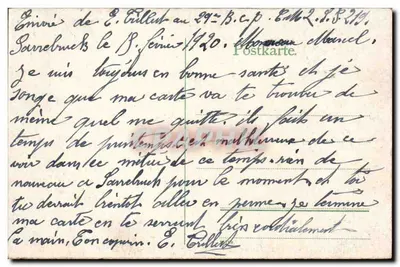 Envoi de E. Trillest au 29me B.C.P. C.M.2. S.P. 219.
Sarrebruck le 18 février 1920. Marcel.
Postkarte.
Je suis toujours en bonne santé et je
songe que ma carte va te trouver de
même quel me quitte. il fait un
temps de printemps c'est malheureux de ce
voir dans ce métier de ce temps. rien de
nouveau a Sarrebruck pour le moment, et toi
tu devrait bientôt aller en perme. je termine
ma carte en te serrent très cordialement
la main. Ton copain. E. Trillest